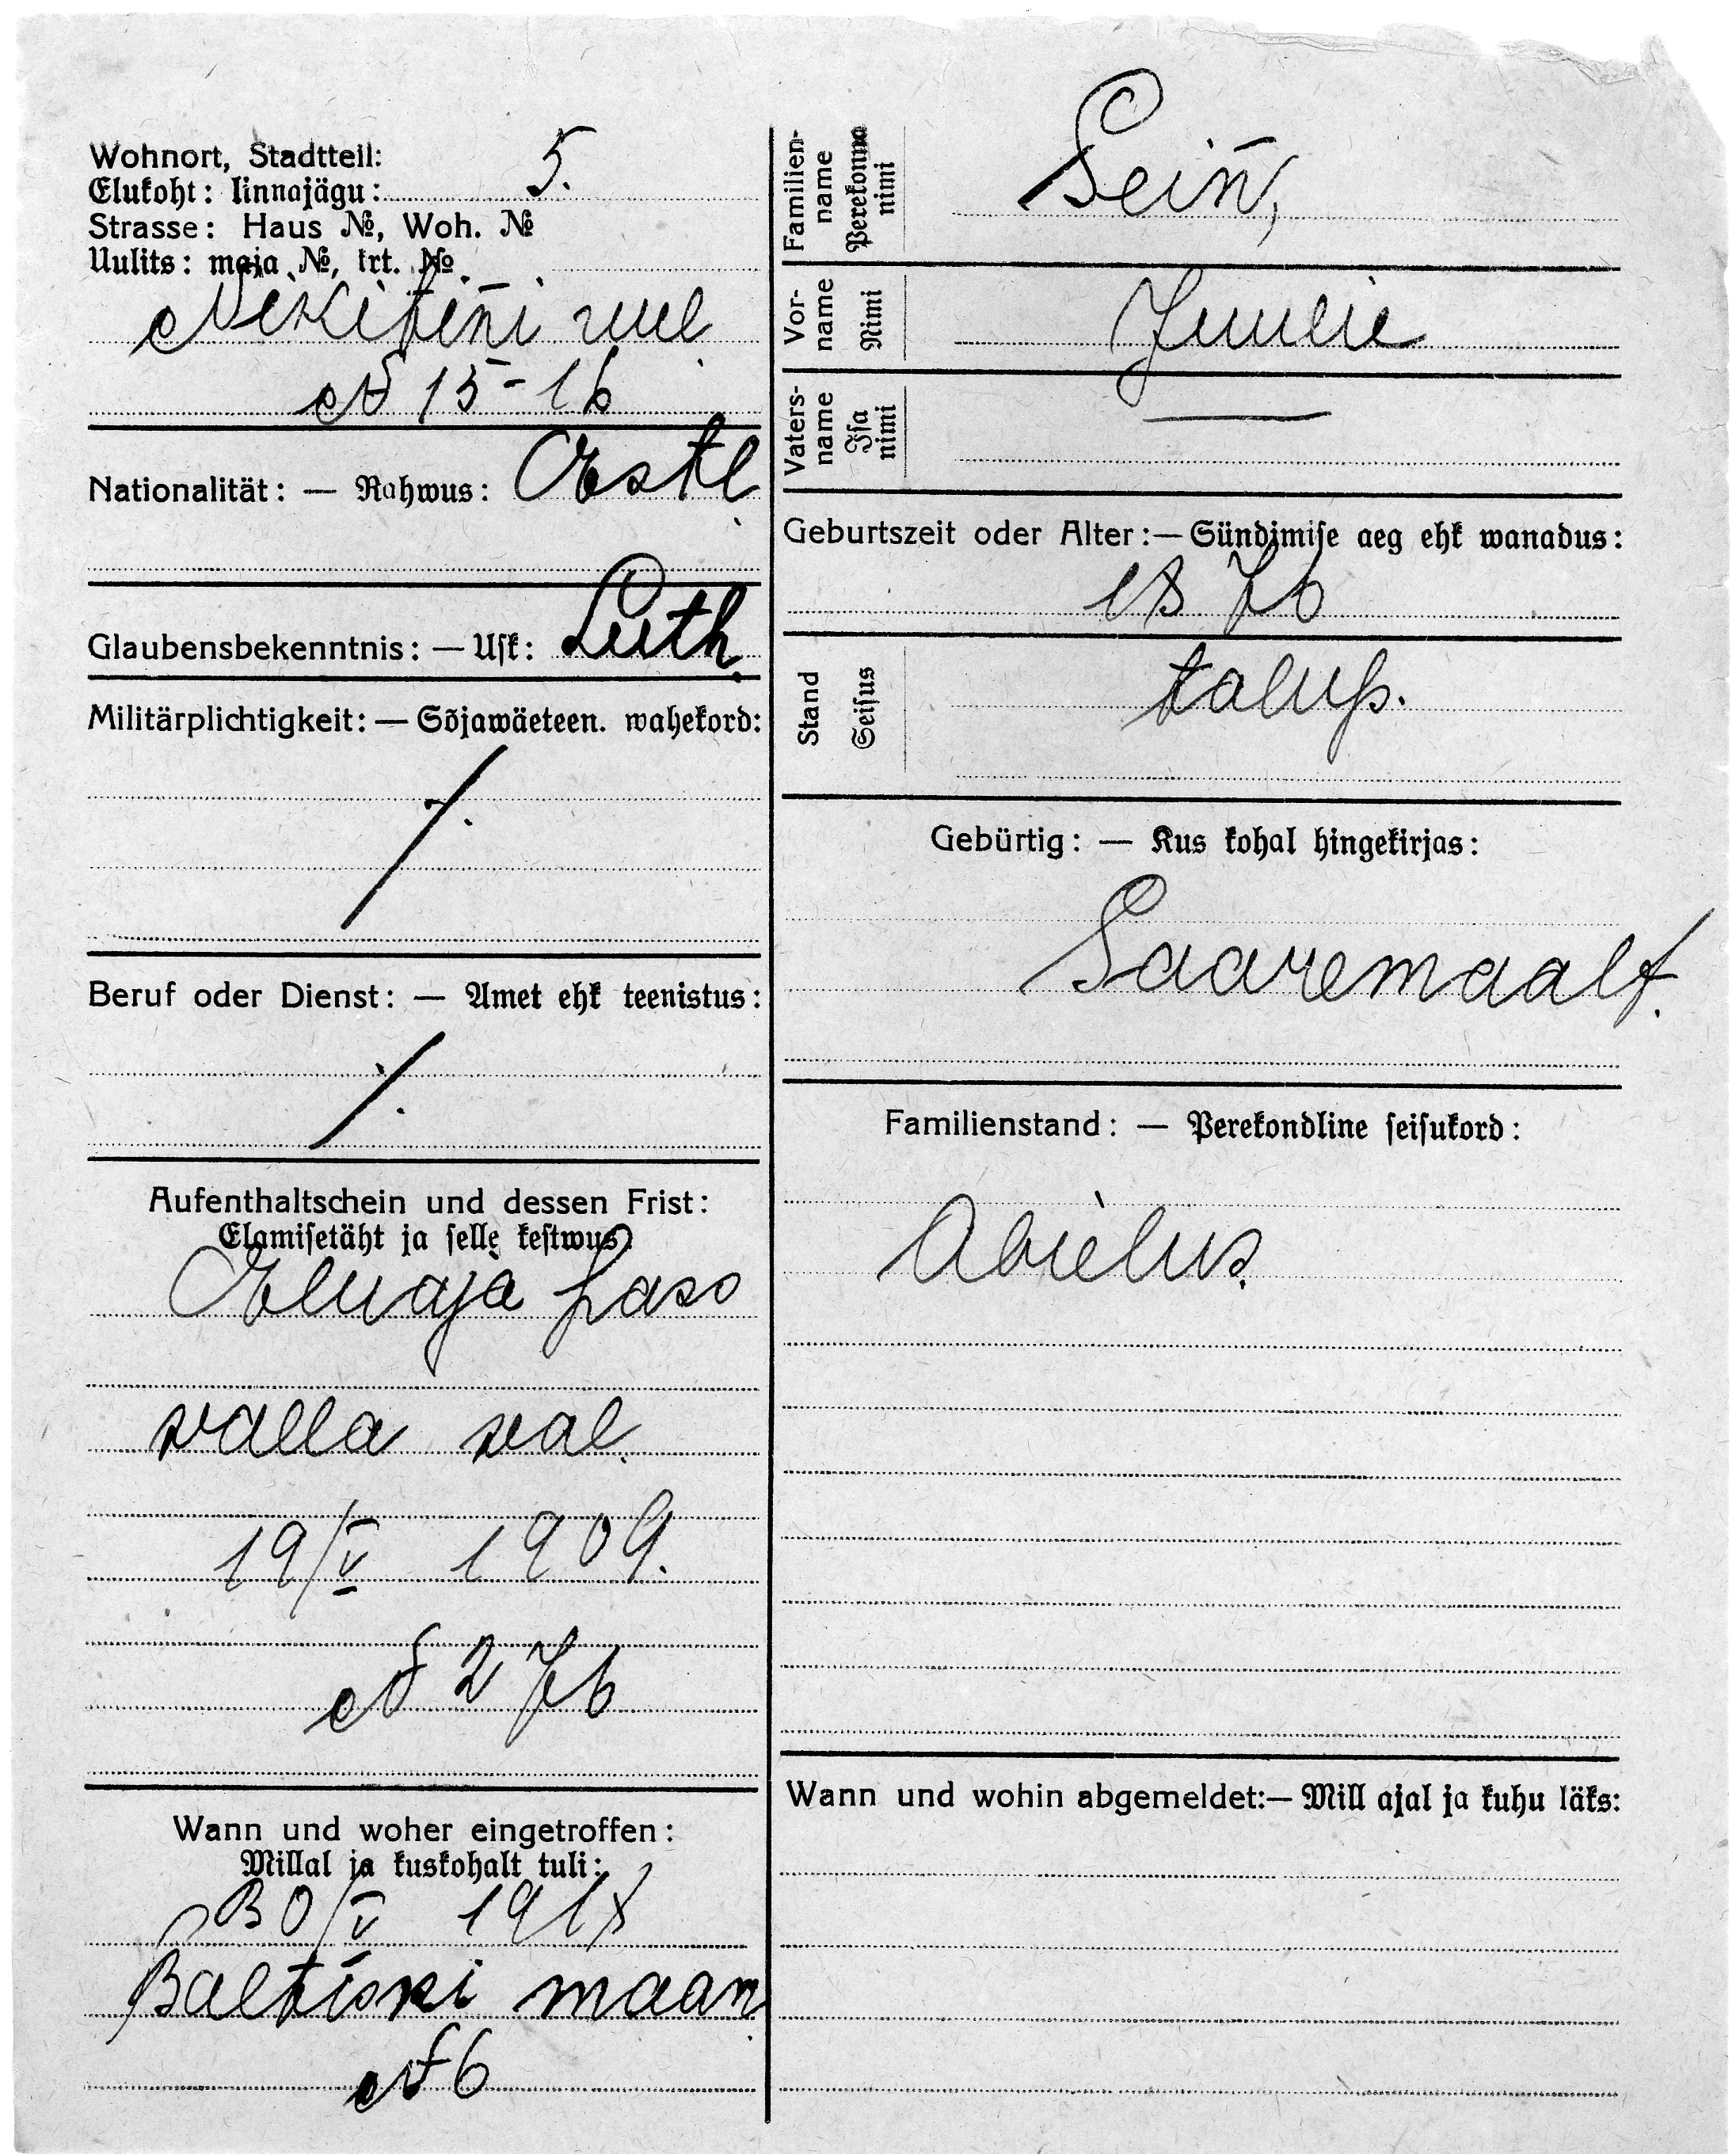 Wohnort, Stadtteil:
Elukoht: linnajägu: 5.
Strasse: Haus №, Woh. №
Uulits: maja №, krt. №
Nikitini uul
№ 15-16
Nationalität: — Rahwus: Estl
Glaubensbekenntnis: — Usk: Luth.
Militärplichtigkeit: — Sõjawäeteen. wahekord:
Beruf oder Dienst: — Amet ehk teenistus:
Aufenthaltschein und dessen Frist:
Elamisetäht ja selle kestwus
Eluaja pass
valla val.
19/V 1909.
№ 276
Wann und woher eingetroffen:
Millal ja kuskohalt tuli:
30/V 1918
Baltiski maan
№ 6
Familien-
name
Perekonna
nimi
Sein,
Vor-
name
Nimi
Juulie
Vaters-
name
Isa
nimi
Geburtszeit oder Alter:— Sündimise aeg ehk wanadus:
1876
Stand
Seisus
talup.
Gebürtig: — Kus kohal hingekirjas:
Saaremaalt.
Familienstand: — Perekondline seisukord:
Abielus.
Wann und wohin abgemeldet:— Mill ajal ja kuhu läks: